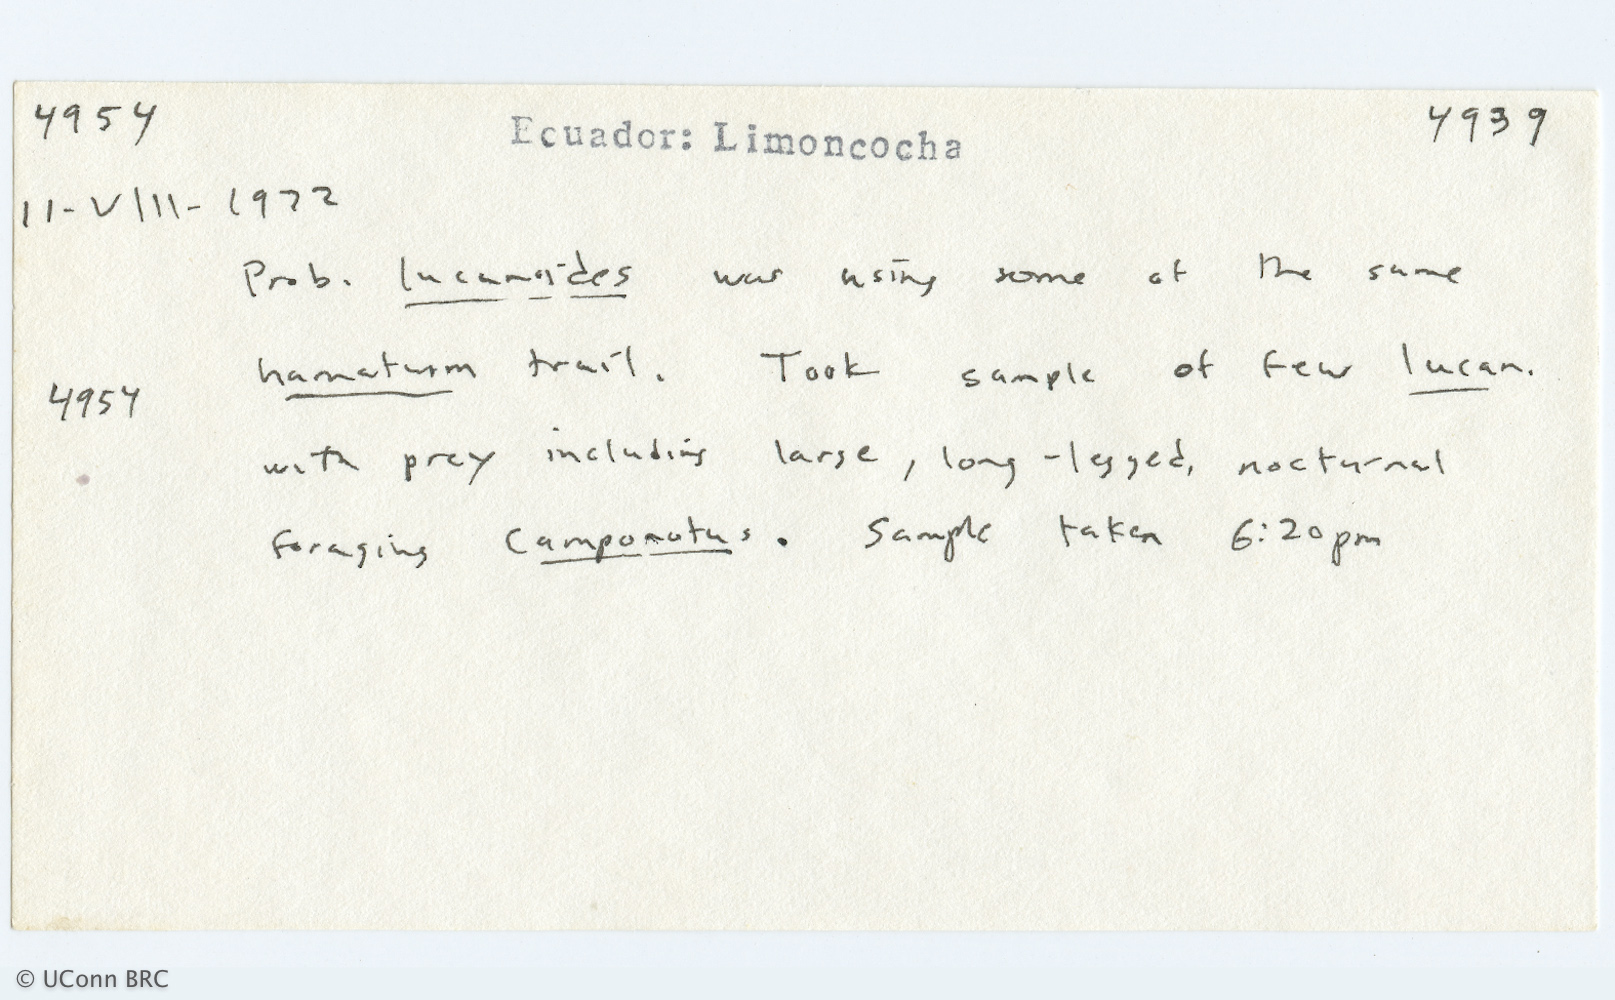 4954 Ecuador: Limoncocha 4939
11-VIII-1972
Prob. lucanoides was using some of the same
hamatum trail. Took sample of few lucan.
4954
with prey including large, long-legged, nocturnal
foraging Camponotus. Sample taken 6:20pm
© UConn BRC